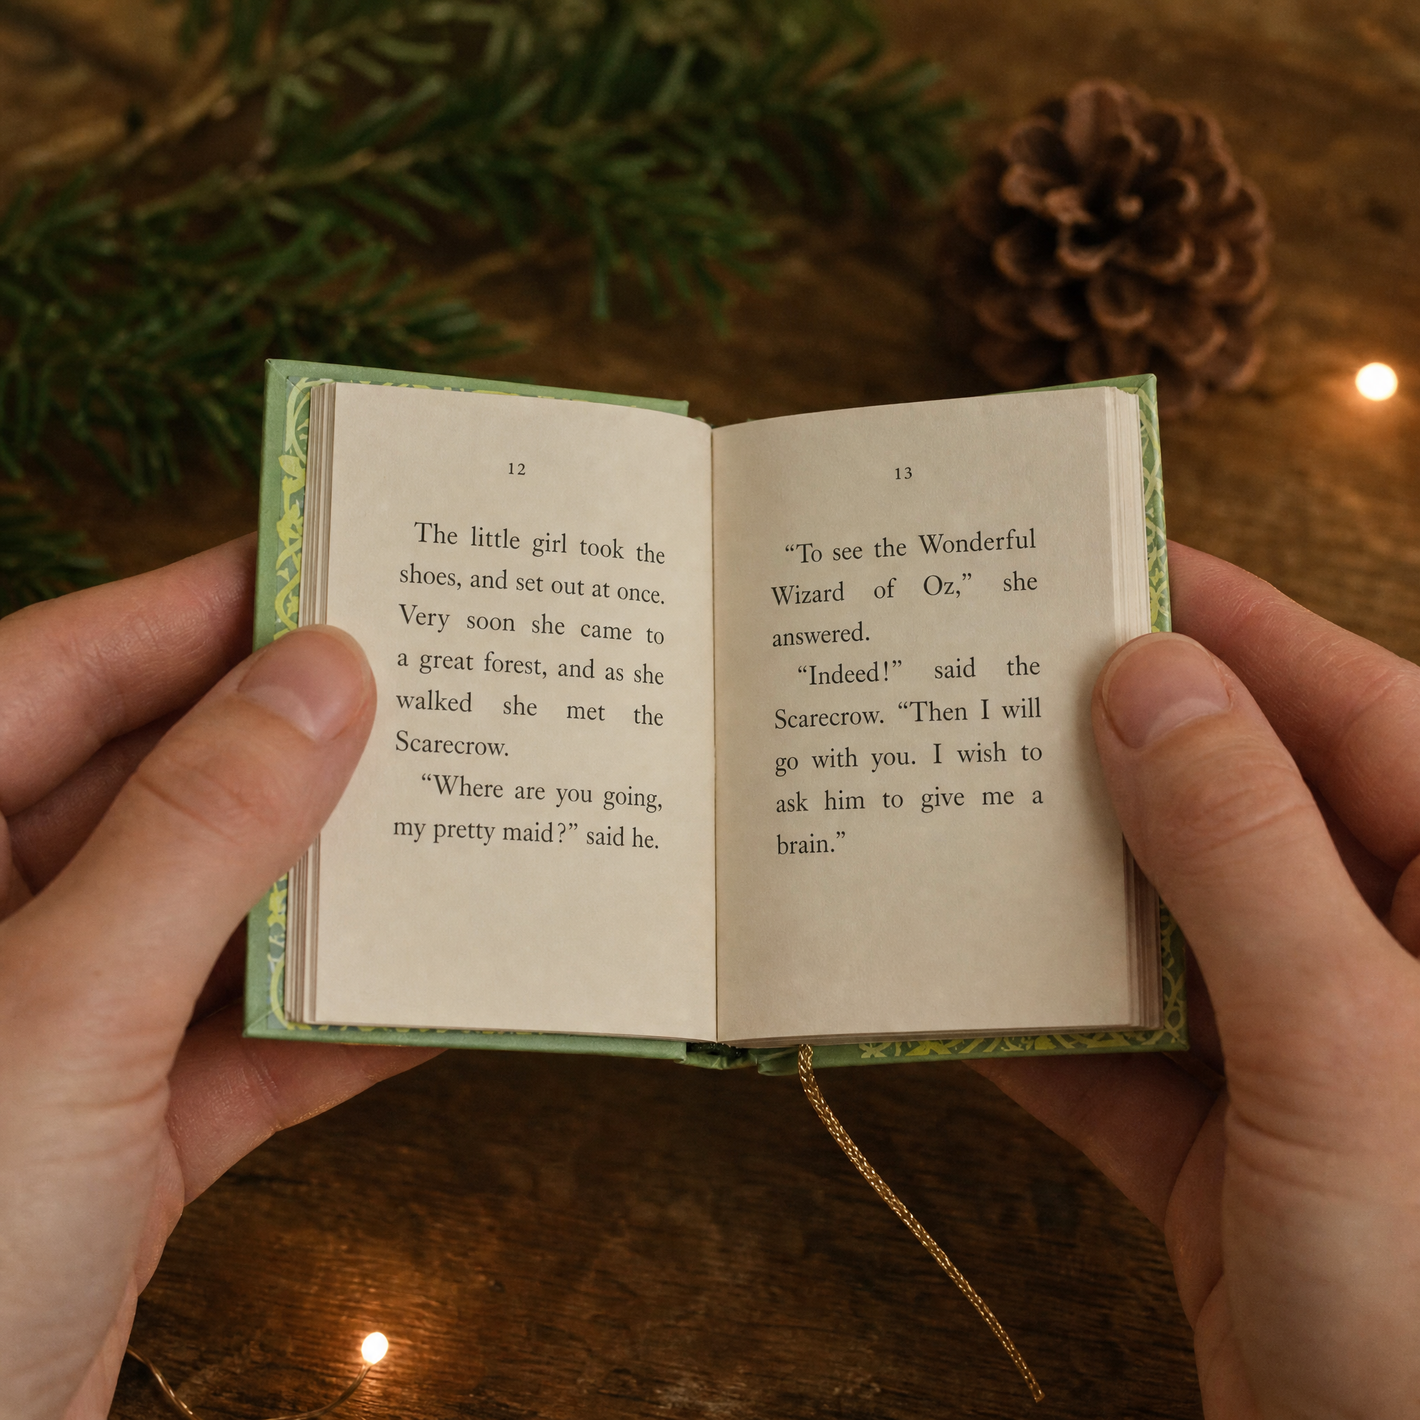 12
The little girl took the
shoes, and set out at once.
Very soon she came to
a great forest, and as she
walked she met the
Scarecrow.
“Where are you going,
my pretty maid?” said he.
13
“To see the Wonderful
Wizard of Oz,” she
answered.
“Indeed!” said the
Scarecrow. “Then I will
go with you. I wish to
ask him to give me a
brain.”